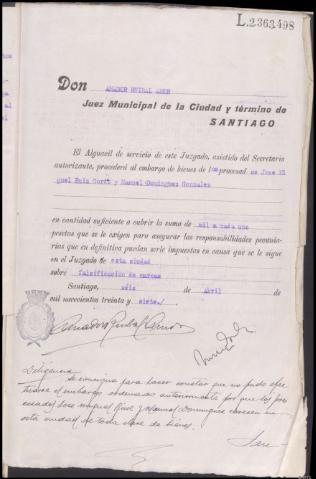 L.2363,498
Don AMADOR REYBAL ABOR
Juez Municipal de la Ciudad y término de
SANTIAGO
El Alguacil de servicio de este Juzgado, asistido del Secretario
autorizante, procederá al embargo de bienes de los procesad os Jose Mi
guel Ruiz Cortz y Manuel Dominguez Gonzalez
en cantidad suficiente a cubrir la suma de mil a cada uno
pesetas que se le exigen para asegurar las responsabilidades pecunia-
rias que en definitiva puedan serle impuestas en causa que se le sigue
en el Juzgado de esta ciudad
sobre falsificación de marcas
Santiago, séis de Abril de
mil novecientos treinta y siete.
Diligencia
Se consigna para hacer constar que no pudo efec
tuarse el embargo ordenado anteriormente por que los pro
cesados Jose Miguel Ruiz y Manuel Dominguez carecen en
esta ciudad de toda clase de bienes.